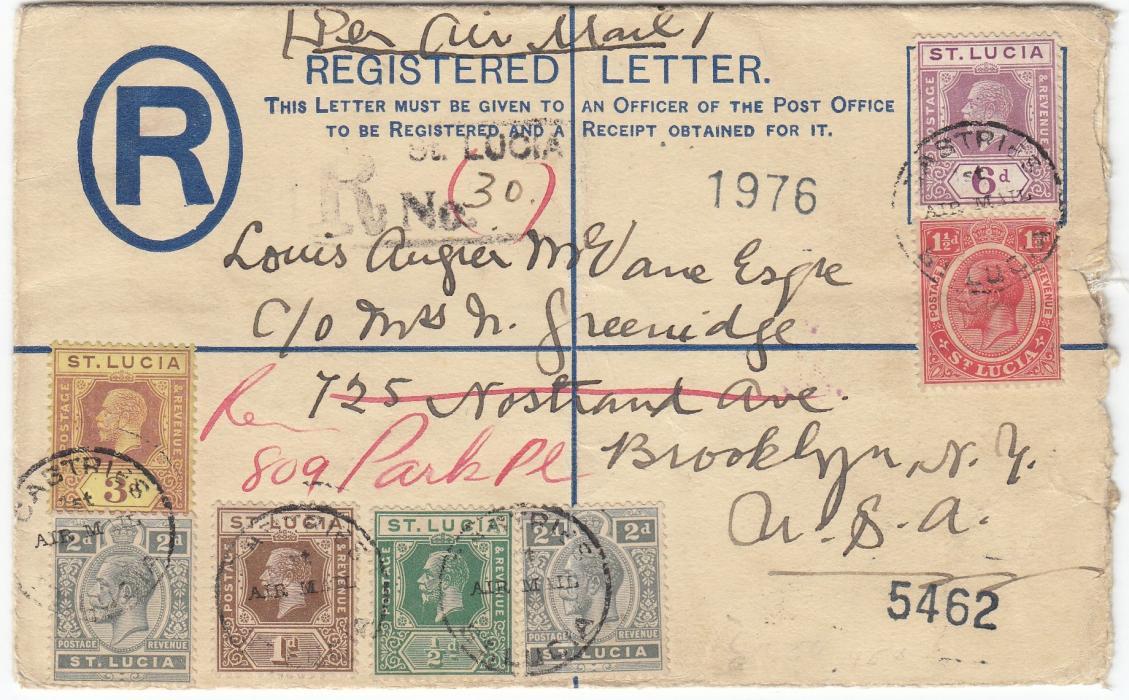 Per Air Mail
REGISTERED LETTER.
THIS LETTER MUST BE GIVEN TO AN OFFICER OF THE POST OFFICE
TO BE REGISTERED AND A RECEIPT OBTAINED FOR IT.
R
St. LUCIA
R No. 30.
1976
Louis Augier McVane Esqre
C/o Mrs N. Greenidge
725 Nostrand Ave.
Re
809 Park Pl
Brooklyn, N.Y.
U.S.A.
5462
ST. LUCIA
POSTAGE & REVENUE
6d
CASTRIES
1st
AIR MAIL
1½d 1½d
POSTAGE REVENUE
ST LUCIA
ST. LUCIA
POSTAGE & REVENUE
3d
CASTRIES
1st
AIR MAIL
2d 2d
POSTAGE REVENUE
ST. LUCIA
ST. LUCIA
POSTAGE & REVENUE
1d
AIR MAIL
ST. LUCIA
POSTAGE & REVENUE
½d
AIR MAIL
ST. LUCIA
2d 2d
POSTAGE REVENUE
ST. LUCIA